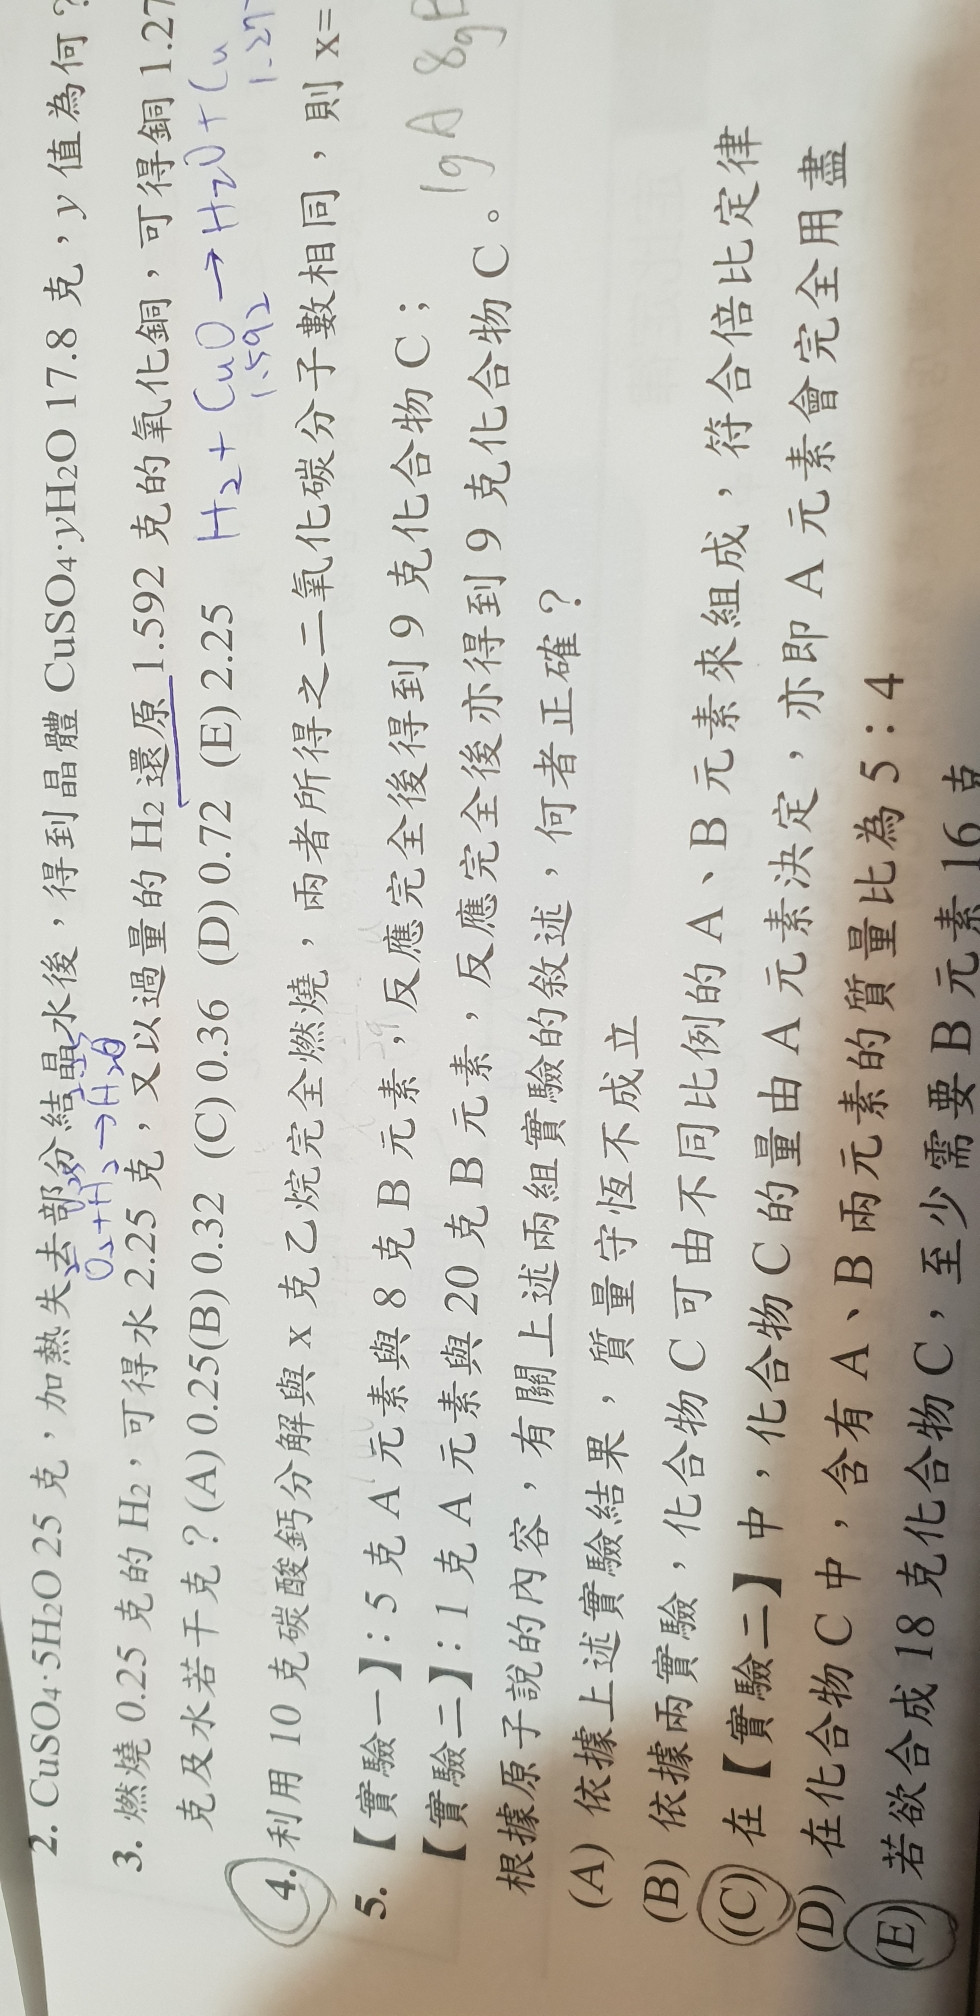 2. CuSO4·5H2O 25 克，加熱失去部分結晶水後，得到晶體 CuSO4·yH2O 17.8 克，y 值為何？
O2+H2→H2O
3. 燃燒 0.25 克的 H2，可得水 2.25 克，又以過量的 H2 還原 1.592 克的氧化銅，可得銅 1.27
克及水若干克？(A) 0.25(B) 0.32 (C) 0.36 (D) 0.72 (E) 2.25
H2+CuO→H2O+Cu
1.592 1.27
4. 利用 10 克碳酸鈣分解與 x 克乙烷完全燃燒，兩者所得之二氧化碳分子數相同，則 x=
5. 【實驗一】：5 克 A 元素與 8 克 B 元素，反應完全後得到 9 克化合物 C；
【實驗二】：1 克 A 元素與 20 克 B 元素，反應完全後亦得到 9 克化合物 C。
1g A 8g B
根據原子說的內容，有關上述兩組實驗的敘述，何者正確？
(A) 依據上述實驗結果，質量守恆不成立
(B) 依據兩實驗，化合物 C 可由不同比例的 A、B 元素來組成，符合倍比定律
(C) 在【實驗二】中，化合物 C 的量由 A 元素決定，亦即 A 元素會完全用盡
(D) 在化合物 C 中，含有 A、B 兩元素的質量比為 5：4
(E) 若欲合成 18 克化合物 C，至少需要 B 元素 16 克